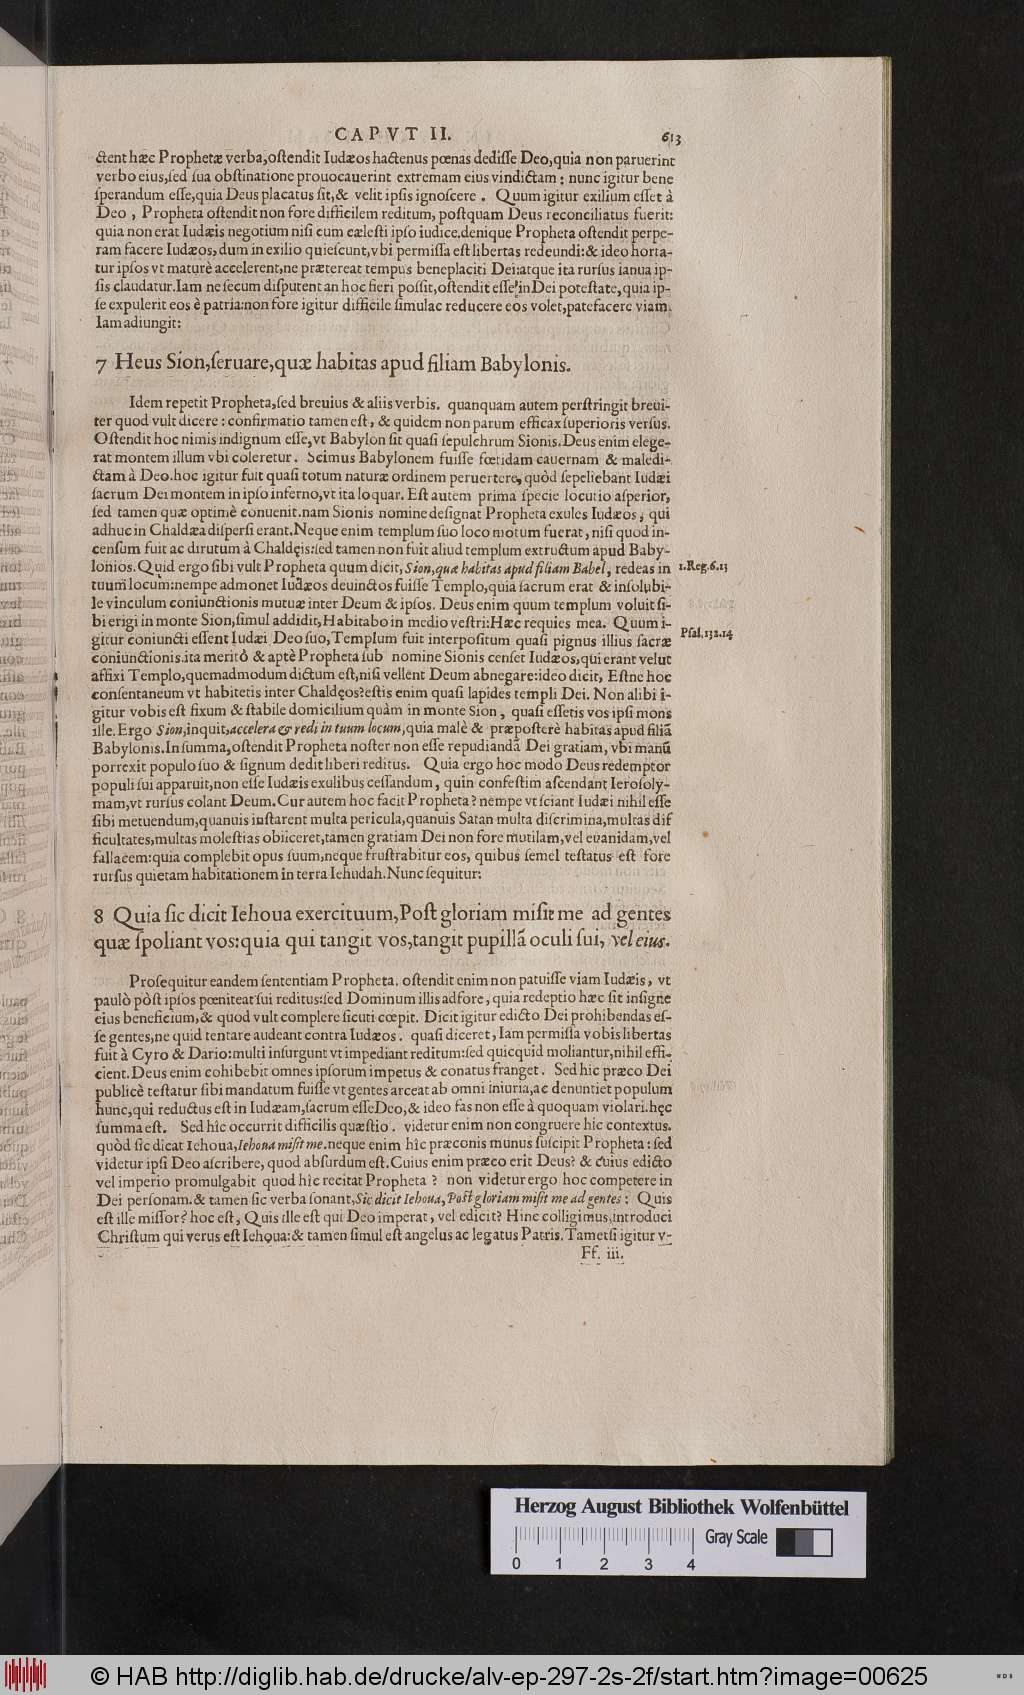 CAPVT II. 613
ctent hæc Prophetæ verba, oſtendit Iudæos hactenus pœnas dediſſe Deo, quia non paruerint
verbo eius, ſed ſua obſtinatione prouocauerint extremam eius vindictam: nunc igitur bene
ſperandum eſſe, quia Deus placatus ſit, & velit ipſis ignoſcere. Quum igitur exilium eſſet à
Deo, Propheta oſtendit non fore difficilem reditum, poſtquam Deus reconciliatus fuerit:
quia non erat Iudæis negotium niſi cum cæleſti ipſo iudice. denique Propheta oſtendit perpe-
ram facere Iudæos, dum in exilio quieſcunt, vbi permiſſa eſt libertas redeundi: & ideo horta-
tur ipſos vt maturè accelerent, ne prætereat tempus beneplaciti Dei: atque ita rurſus ianua ip-
ſis claudatur. Iam ne ſecum diſputent an hoc fieri poſſit, oſtendit eſſe in Dei poteſtate, quia ip-
ſe expulerit eos è patria: non fore igitur difficile ſimulac reducere eos volet, patefacere viam.
Iam adiungit:
7 Heus Sion, ſeruare, quæ habitas apud filiam Babylonis.
Idem repetit Propheta, ſed breuius & aliis verbis. quanquam autem perſtringit breui-
ter quod vult dicere: confirmatio tamen eſt, & quidem non parum efficax ſuperioris verſus.
Oſtendit hoc nimis indignum eſſe, vt Babylon ſit quaſi ſepulchrum Sionis. Deus enim elege-
rat montem illum vbi coleretur. Scimus Babylonem fuiſſe fœtidam cauernam & maledi-
ctam à Deo. hoc igitur fuit quaſi totum naturæ ordinem peruertere, quòd ſepeliebant Iudæi
ſacrum Dei montem in ipſo inferno, vt ita loquar. Eſt autem prima ſpecie locutio aſperior,
ſed tamen quæ optimè conuenit. nam Sionis nomine deſignat Propheta exules Iudæos, qui
adhuc in Chaldæa diſperſi erant. Neque enim templum ſuo loco motum fuerat, niſi quod in-
cenſum fuit ac dirutum à Chaldęis: ſed tamen non fuit aliud templum extructum apud Baby-
lonios. Quid ergo ſibi vult Propheta quum dicit, Sion, quæ habitas apud filiam Babel, redeas in 1. Reg. 6. 13
tuum locum: nempe admonet Iudæos deuinctos fuiſſe Templo, quia ſacrum erat & inſolubi-
le vinculum coniunctionis mutuæ inter Deum & ipſos. Deus enim quum templum voluit ſi-
bi erigi in monte Sion, ſimul addidit, Habitabo in medio veſtri: Hæc requies mea. Quum i- Pſal. 132. 14
gitur coniuncti eſſent Iudæi Deo ſuo, Templum fuit interpoſitum quaſi pignus illius ſacræ
coniunctionis. ita meritò & aptè Propheta ſub nomine Sionis cenſet Iudæos, qui erant velut
affixi Templo, quemadmodum dictum eſt, niſi vellent Deum abnegare: ideo dicit, Eſtne hoc
conſentaneum vt habitetis inter Chaldęos? eſtis enim quaſi lapides templi Dei. Non alibi i-
gitur vobis eſt fixum & ſtabile domicilium quàm in monte Sion, quaſi eſſetis vos ipſi mons
ille. Ergo Sion, inquit, accelera & redi in tuum locum, quia malè & præpoſterè habitas apud filiã
Babylonis. In ſumma, oſtendit Propheta noſter non eſſe repudiandã Dei gratiam, vbi manũ
porrexit populo ſuo & ſignum dedit liberi reditus. Quia ergo hoc modo Deus redemptor
populi ſui apparuit, non eſſe Iudæis exulibus ceſſandum, quin confeſtim aſcendant Ieroſoly-
mam, vt rurſus colant Deum. Cur autem hoc facit Propheta? nempe vt ſciant Iudæi nihil eſſe
ſibi metuendum, quanuis inſtarent multa pericula, quanuis Satan multa diſcrimina, multas dif
ficultates, multas moleſtias obiiceret, tamen gratiam Dei non fore mutilam, vel euanidam, vel
fallacem: quia complebit opus ſuum, neque fruſtrabitur eos, quibus ſemel teſtatus eſt fore
rurſus quietam habitationem in terra Iehudah. Nunc ſequitur:
8 Quia ſic dicit Iehoua exercituum, Poſt gloriam miſit me ad gentes
quæ ſpoliant vos: quia qui tangit vos, tangit pupillã oculi ſui, vel eius.
Proſequitur eandem ſententiam Propheta. oſtendit enim non patuiſſe viam Iudæis, vt
paulò pòſt ipſos pœniteat ſui reditus: ſed Dominum illis adfore, quia redeptio hæc ſit inſigne
eius beneficium, & quod vult complere ſicuti cœpit. Dicit igitur edicto Dei prohibendas eſ-
ſe gentes, ne quid tentare audeant contra Iudæos. quaſi diceret, Iam permiſſa vobis libertas
fuit à Cyro & Dario: multi inſurgunt vt impediant reditum: ſed quicquid moliantur, nihil effi-
cient. Deus enim cohibebit omnes ipſorum impetus & conatus franget. Sed hic præco Dei
publicè teſtatur ſibi mandatum fuiſſe vt gentes arceat ab omni iniuria, ac denuntiet populum
hunc, qui reductus eſt in Iudæam, ſacrum eſſe Deo, & ideo fas non eſſe à quoquam violari. hęc
ſumma eſt. Sed hîc occurrit difficilis quæſtio. videtur enim non congruere hîc contextus.
quòd ſic dicat Iehoua, Iehoua miſit me. neque enim hîc præconis munus ſuſcipit Propheta: ſed
videtur ipſi Deo aſcribere, quod abſurdum eſt. Cuius enim præco erit Deus? & cuius edicto
vel imperio promulgabit quod hîc recitat Propheta? non videtur ergo hoc competere in
Dei perſonam. & tamen ſic verba ſonant, Sic dicit Iehoua, Poſt gloriam miſit me ad gentes: Quis
eſt ille miſſor? hoc eſt, Quis ille eſt qui Deo imperat, vel edicit? Hinc colligimus, introduci
Chriſtum qui verus eſt Iehoua: & tamen ſimul eſt angelus ac legatus Patris. Tametſi igitur v-
Ff. iii.
Herzog August Bibliothek Wolfenbüttel
Gray Scale
0 1 2 3 4
© HAB http://diglib.hab.de/drucke/alv-ep-297-2s-2f/start.htm?image=00625